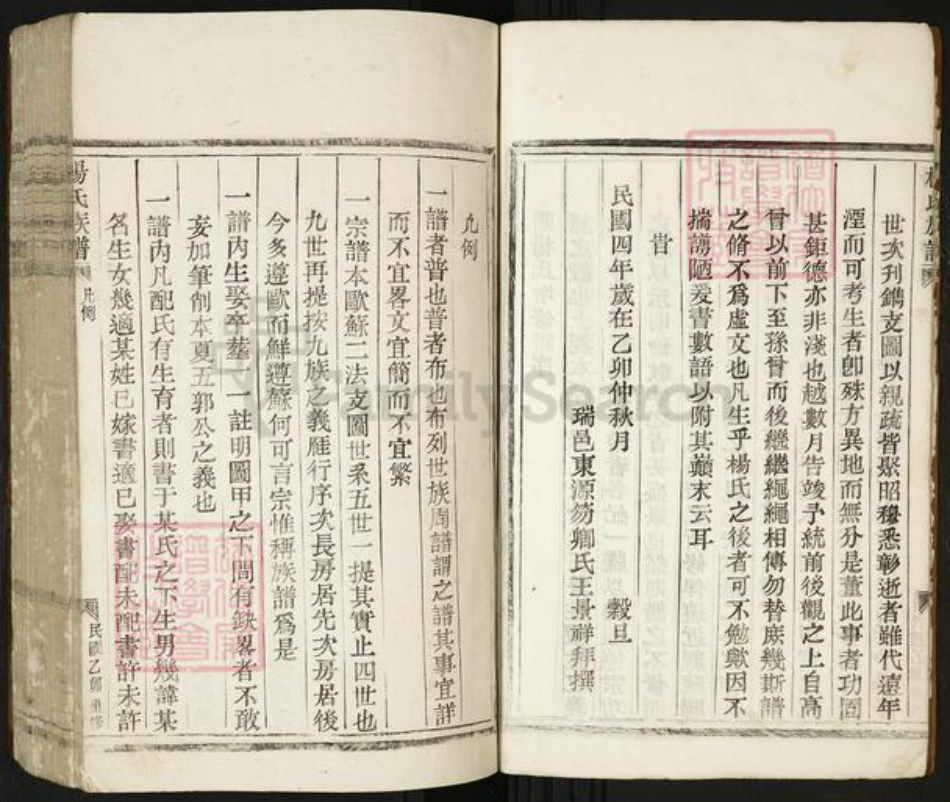 世次刋鐫支圖以親疏皆聚昭穆悉彰逝者雖代遠年
湮而可考生者卽殊方異地而無分是董此事者功固
甚鉅德亦非淺也越數月告竣予統前後觀之上自高
曾以前下至孫曾而後繼繼繩繩相傳勿替庶幾斯譜
之脩不爲虛文也凡生乎楊氏之後者可不勉歟因不
揣謭陋爰書數語以附其巔末云耳
旹
民國四年歲在乙卯仲秋月 穀旦
瑞邑東源笏卿氏王景祥拜撰
凡例
一譜者普也普者布也布列世族周譜謂之譜其事宜詳
而不宜畧文宜簡而不宜繁
一宗譜本歐蘇二法支圖世系五世一提其實止四世也
九世再提按九族之義雁行序次長房居先次房居後
今多遵歐而鮮遵蘇何可言宗惟稱族譜爲是
一譜內生娶卒塟一一註明圖甲之下間有缺畧者不敢
妄加筆削本夏五郭公之義也
一譜內凡配氏有生育者則書于某氏之下生男幾諱某
名生女幾適某姓已嫁書適已娶書配未配書許未許
楊氏族譜
凡例
民國乙卯重修
FamilySearch